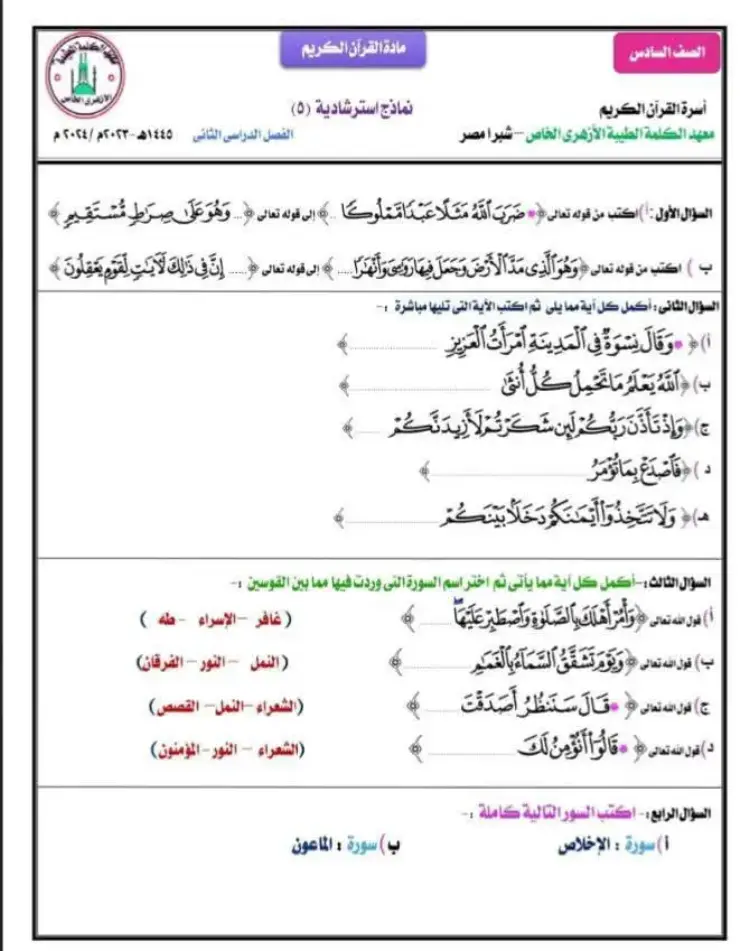 الصف السادس
مادة القرآن الكريم
أسرة القرآن الكريم
نماذج استرشادية (٥)
معهد الكلمة الطيبة الأزهرى الخاص – شبرا مصر
الفصل الدراسى الثانى
١٤٤٥هـ - ٢٠٢٣م / ٢٠٢٤ م
السؤال الأول : أ) اكتب من قوله تعالى ﴿ ضَرَبَ ٱللَّهُ مَثَلًا عَبْدًا مَّمْلُوكًا .. ﴾ إلى قوله تعالى ﴿ ... وَهُوَ عَلَىٰ صِرَٰطٍ مُّسْتَقِيمٍ ﴾
ب ) اكتب من قوله تعالى ﴿ وَهُوَ ٱلَّذِى مَدَّ ٱلْأَرْضَ وَجَعَلَ فِيهَا رَوَٰسِىَ وَأَنْهَٰرًا .... ﴾ إلى قوله تعالى ﴿ ..... إِنَّ فِى ذَٰلِكَ لَآيَٰتٍ لِّقَوْمٍ يَعْقِلُونَ ﴾
السؤال الثانى : أكمل كل آية مما يلى ثم اكتب الآية التى تليها مباشرة :-
أ) ﴿ وَقَالَ نِسْوَةٌ فِى ٱلْمَدِينَةِ ٱمْرَأَتُ ٱلْعَزِيزِ .................. ﴾
ب) ﴿ ٱللَّهُ يَعْلَمُ مَا تَحْمِلُ كُلُّ أُنثَىٰ .................. ﴾
ج) ﴿ وَإِذْ تَأَذَّنَ رَبُّكُمْ لَئِن شَكَرْتُمْ لَأَزِيدَنَّكُمْ ........ ﴾
د ) ﴿ فَٱصْدَعْ بِمَا تُؤْمَرُ .................. ﴾
هـ) ﴿ وَلَا تَتَّخِذُوٓا۟ أَيْمَٰنَكُمْ دَخَلًۢا بَيْنَكُمْ .................. ﴾
السؤال الثالث :- أكمل كل آية مما يأتى ثم اختر اسم السورة التى وردت فيها مما بين القوسين :-
أ) قول الله تعالى ﴿ وَأْمُرْ أَهْلَكَ بِٱلصَّلَوٰةِ وَٱصْطَبِرْ عَلَيْهَا ........ ﴾ ( غافر – الإسراء - طه )
ب) قول الله تعالى ﴿ وَيَوْمَ تَشَقَّقُ ٱلسَّمَآءُ بِٱلْغَمَٰمِ ............ ﴾ ( النمل – النور – الفرقان)
ج) قول الله تعالى ﴿ قَالَ سَنَنظُرُ أَصَدَقْتَ ............ ﴾ (الشعراء – النمل – القصص)
د) قول الله تعالى ﴿ قَالُوٓا۟ أَنُؤْمِنُ لَكَ .............. ﴾ (الشعراء – النور – المؤمنون)
السؤال الرابع :- اكتب السور التالية كاملة :-
أ) سورة : الإخلاص ب) سورة : الماعون